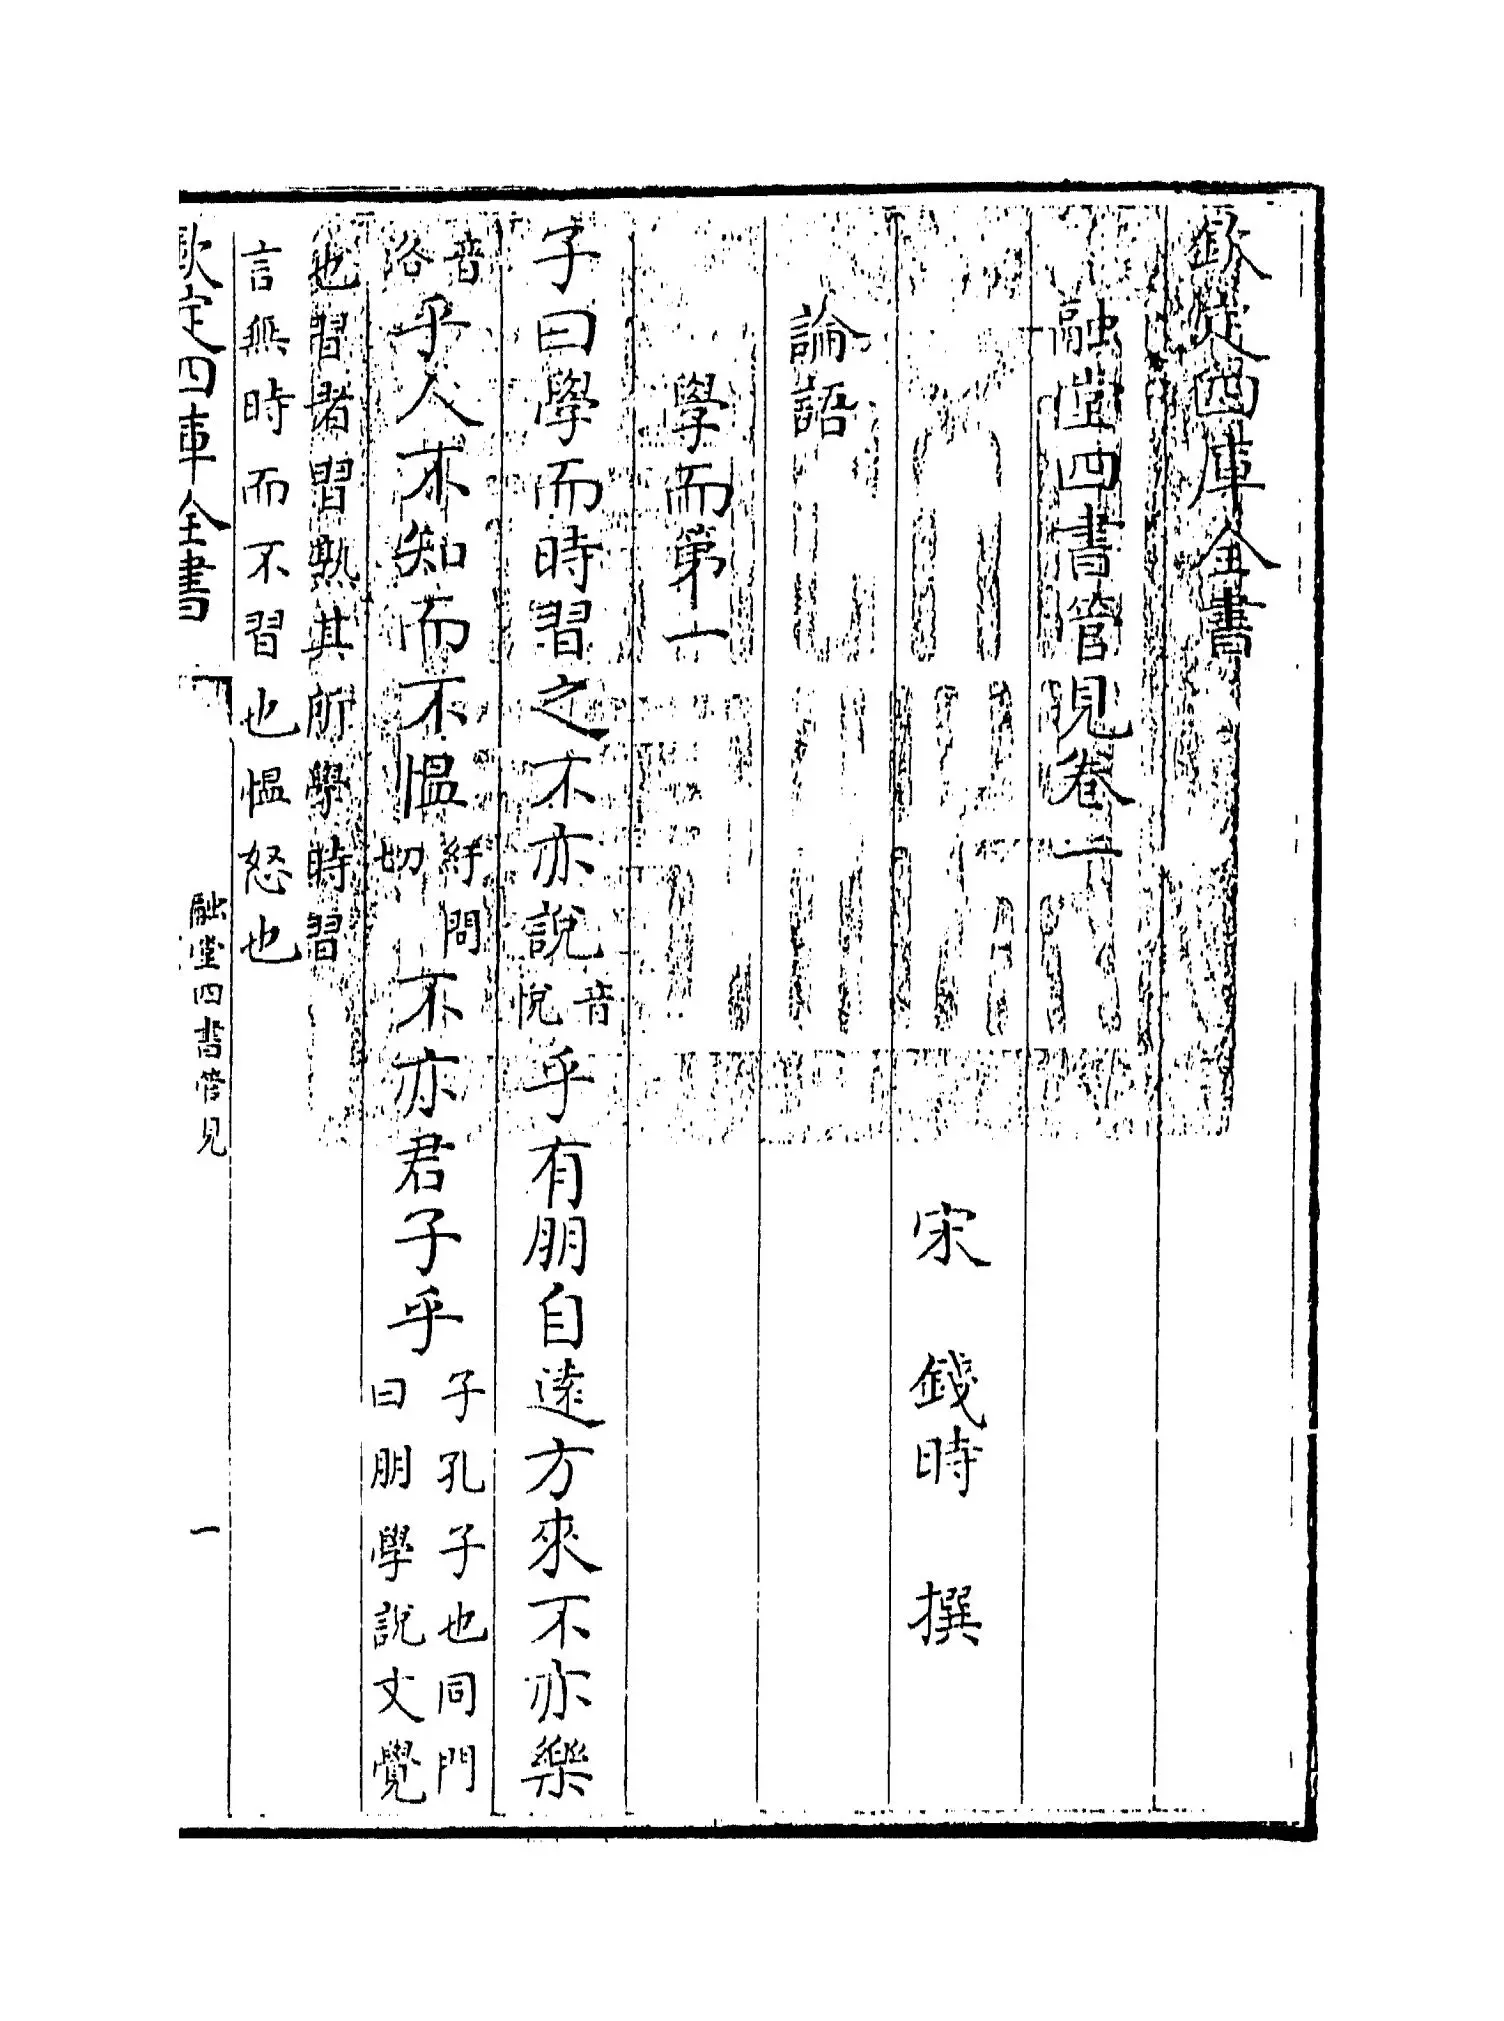 欽定四庫全書
融堂四書管見卷一
宋 錢時 撰
論語
學而第一
子曰學而時習之不亦說音悅乎有朋自遠方來不亦樂
音洛乎人不知而不慍紆問切不亦君子乎子孔子也同門曰朋學說文覺
也習者習熟其所學時習
言無時而不習也慍怒也
欽定四庫全書 融堂四書管見 一